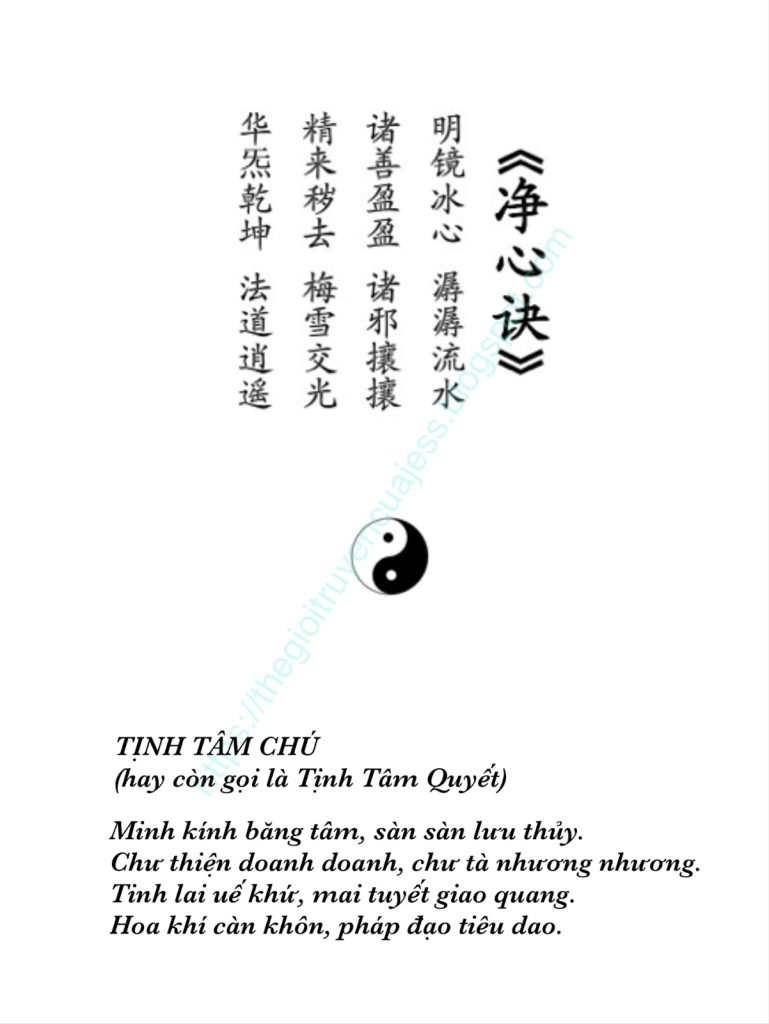 《净心诀》
明镜冰心 潺潺流水
诸善盈盈 诸邪攘攘
精来秽去 梅雪交光
华炁乾坤 法道逍遥
https://thegioitruyencuajess.blogspot.com
TỊNH TÂM CHÚ
(hay còn gọi là Tịnh Tâm Quyết)
Minh kính băng tâm, sàn sàn lưu thủy.
Chư thiện doanh doanh, chư tà nhương nhương.
Tinh lai uế khứ, mai tuyết giao quang.
Hoa khí càn khôn, pháp đạo tiêu dao.